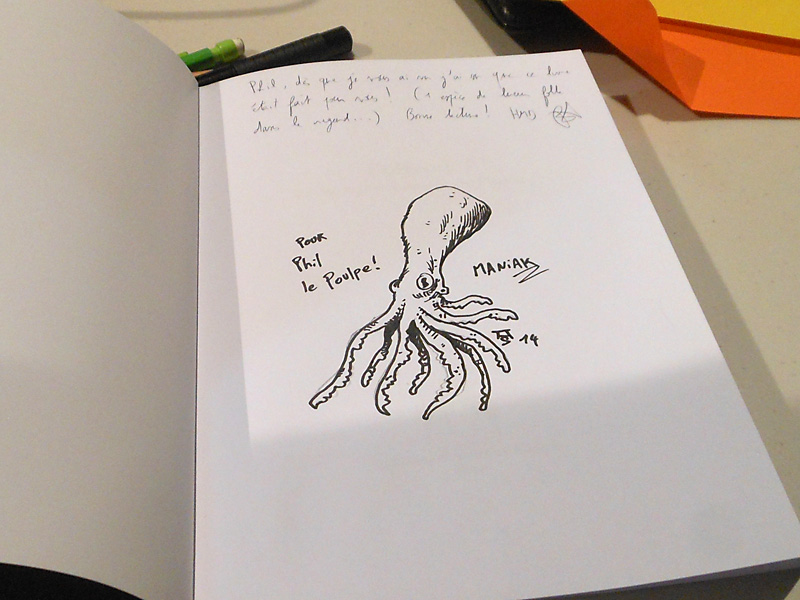 Phil, dès que je vous ai vu j'ai su que ce livre
était fait pour vous! (1 espèce de lueur folle
dans le regard...) Bonne lecture!
Pour
Phil
le Poulpe!
MANIAK
14